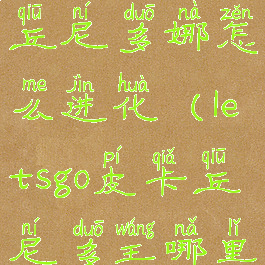 qiū ní duō nà zěn
丘尼多娜怎
me jìn huà
么进化(le
pí qiǎ qiū
tsgo皮卡丘
ní duō wáng nǎ lǐ
尼多王哪里